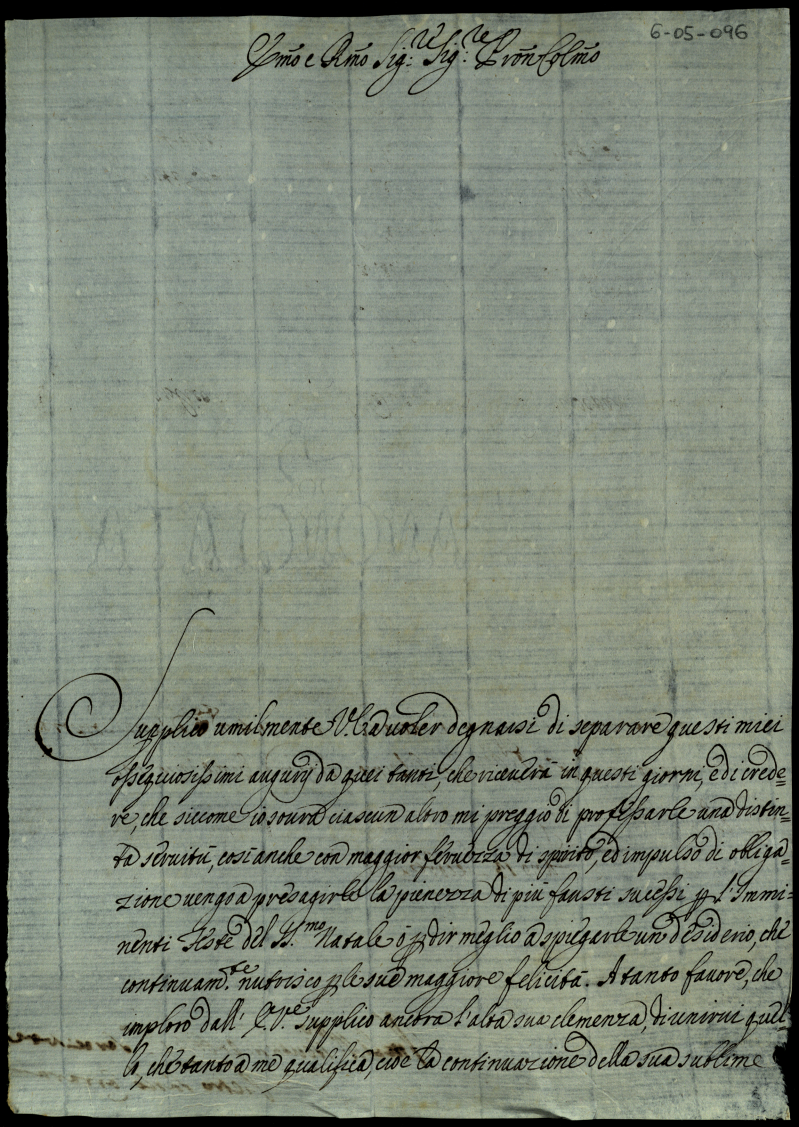 6-05-096
Emo e Rmo Sig:re Sig:re Pron Colmo
Supplico umilmente V. E. a voler degnarsi di separare questi miei
osseguiosissimi augurÿ da quei tanti, che riceverà in questi giorni, e di crede=
re, che siccome io sovra ciascun altro mi preggio di professarle una distin=
ta servitù, così anche con maggior fervezza di spirito, ed impulso di obliga=
zione vengo a presagirle la pienezza di più fausti sucessi p l'Immi=
nenti Feste del SS.mo Natale ò p dir meglio a spiegarle un desiderio, che
continuam.te nutrisco p le sue maggiore felicità. A tanto favore, che
imploro dall' E. V.re supplico ancora l'alta sua clemenza, di unirvi quel=
lo, che tanto a me qualifica, cioe la continuazione della sua sublime